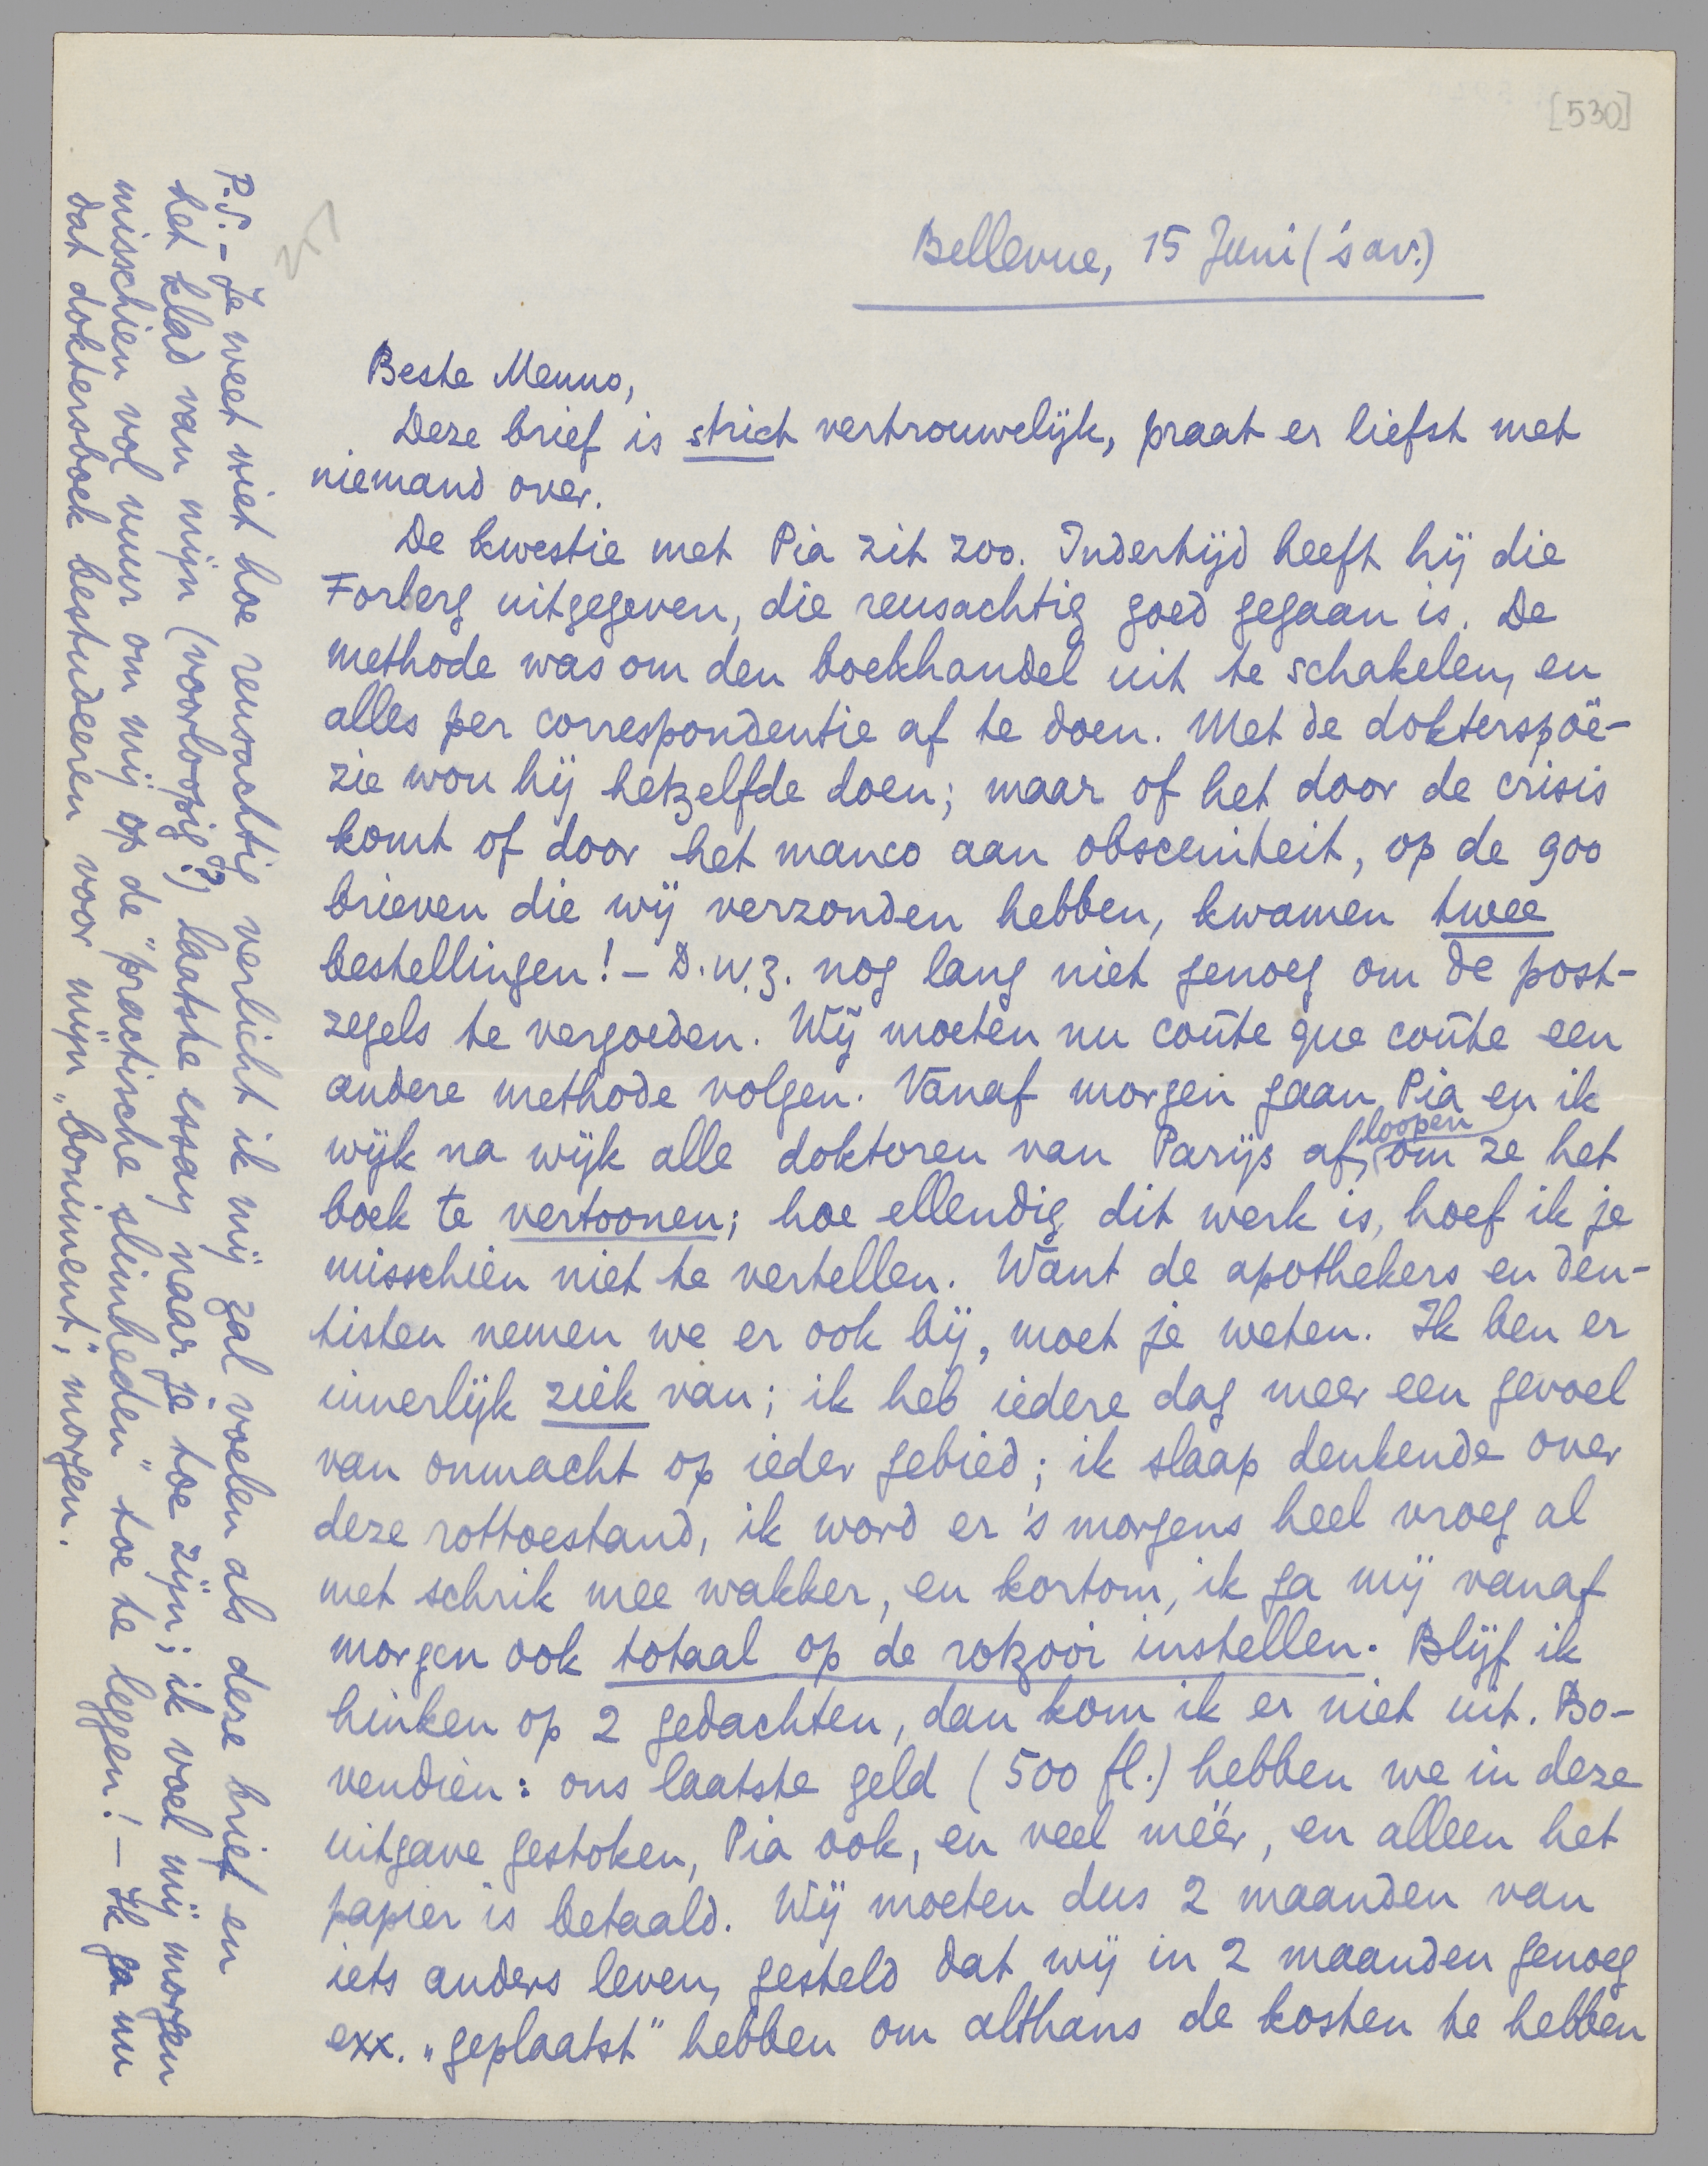 [530]
Bellevue, 15 Juni ('s av.)
Beste Menno,
Deze brief is strict vertrouwelijk, praat er liefst met
niemand over.
De kwestie met Pia zit zoo. Indertijd heeft hij die
Forberg uitgegeven, die reusachtig goed gegaan is. De
methode was om den boekhandel uit te schakelen, en
alles per correspondentie af te doen. Met de dokterspoë-
zie wou hij hetzelfde doen; maar of het door de crisis
komt of door het manco aan obsceniteit, op de 900
brieven die wij verzonden hebben, kwamen twee
bestellingen! - D.w.z. nog lang niet genoeg om de post-
zegels te vergoeden. Wij moeten nu coûte que coûte een
andere methode volgen. Vanaf morgen gaan Pia en ik
wijk na wijk alle doktoren van Parijs afloopen, om ze het
boek te vertoonen; hoe ellendig dit werk is, hoef ik je
misschien niet te vertellen. Want de apothekers en den-
tisten nemen we er ook bij, moet je weten. Ik ben er
innerlijk ziek van; ik heb iedere dag meer een gevoel
van onmacht op ieder gebied; ik slaap denkende over
deze rottoestand, ik word er 's morgens heel vroeg al
met schrik mee wakker, en kortom, ik ga mij vanaf
morgen ook totaal op de rotzooi instellen. Blijf ik
hinken op 2 gedachten, dan kom ik er niet uit. Bo-
vendien: ons laatste geld (500 fl.) hebben we in deze
uitgave gestoken, Pia ook, en veel méér, en alleen het
papier is betaald. Wij moeten dus 2 maanden van
iets anders leven, gesteld dat wij in 2 maanden genoeg
exx. „geplaatst" hebben om althans de kosten te hebben
P.S. - Je weet niet hoe reusachtig verlicht ik mij zal voelen als deze brief en
het klad van mijn (voorloopig?) laatste essay naar je toe zijn; ik voel mij morgen
misschien vol vuur om mij op de „practische slimheden" toe te leggen! - Ik ga nu
dat doktersboek bestudeeren voor mijn „boniment", morgen.